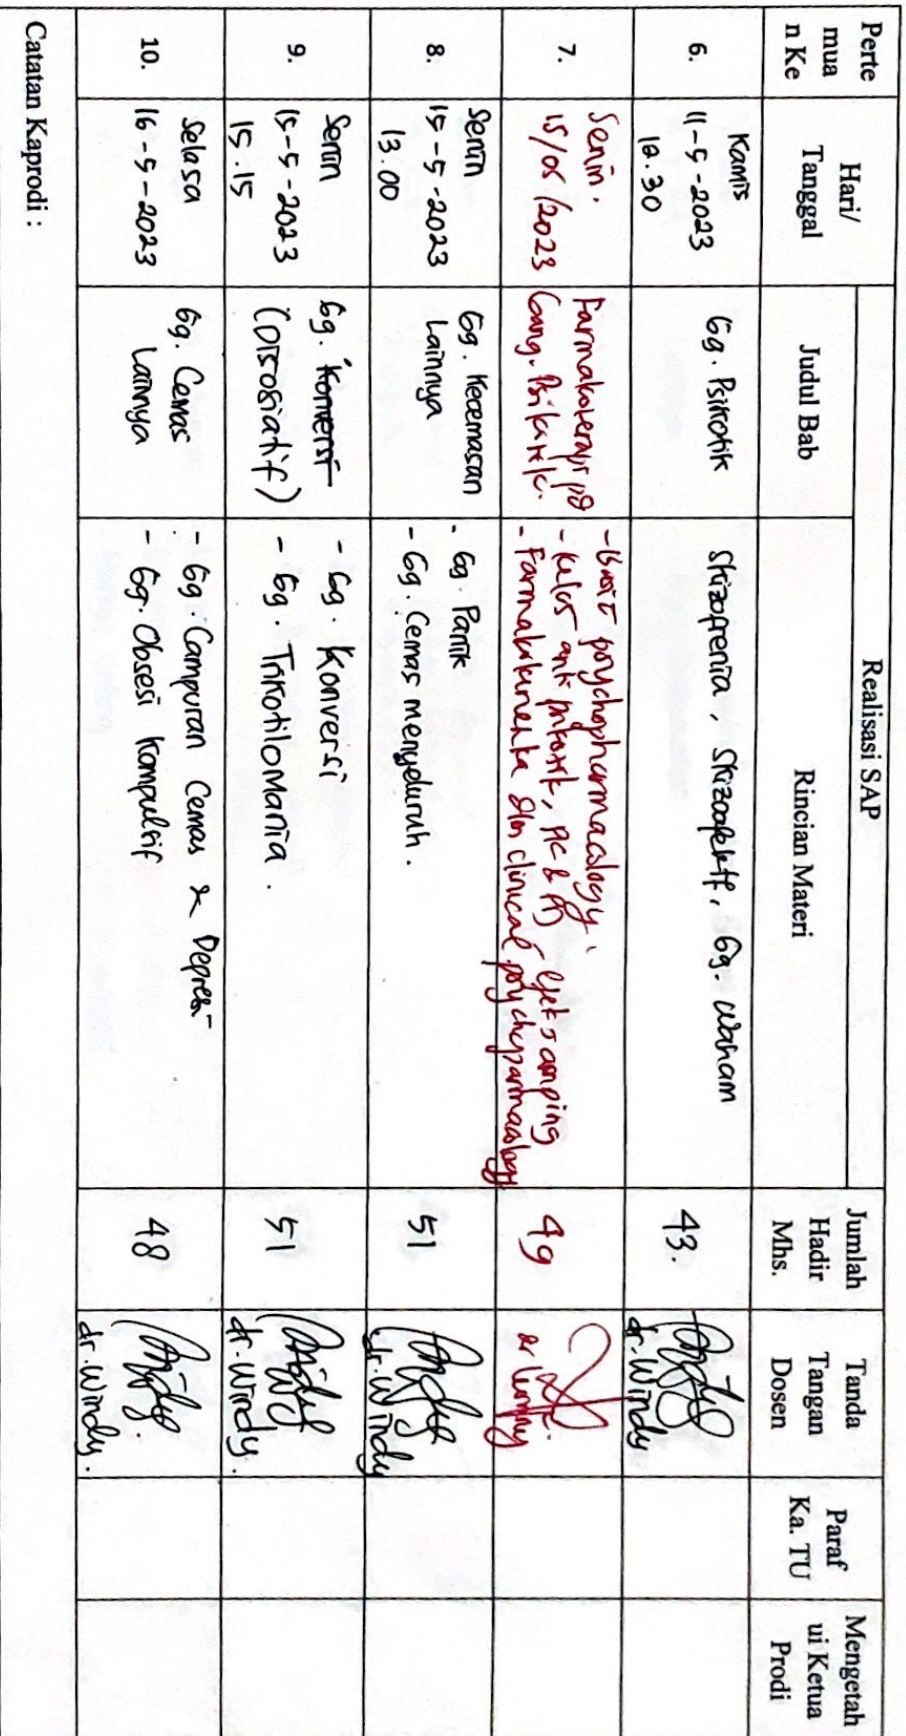 Perte
mua
n Ke
Hari/
Tanggal
Realisasi SAP
Judul Bab
Rincian Materi
Jumlah
Hadir
Mhs.
Tanda
Tangan
Dosen
Paraf
Ka. TU
Mengetah
ui Ketua
Prodi
6.
Kamis
11-5-2023
Gg. Psikotik
Skizofrenia, Skizoafektif, Gg. Waham
43.
dr. Windy
7.
Senin.
15/05/2023
Farmakoterapi pd
Gang. Psikiatrik.
- Basic psychopharmacology,
- Kelas anti psikotik, efek samping
- Farmakokinetika dan clinical psychoparmacology
49
8.
Senin
15-5-2023
13.00
Gg. Kecemasan
Lainnya
- Gg. Panik
- Gg. Cemas menyeluruh.
51
dr. Windy
9.
Senin
15-5-2023
15.15
Gg. Konversi
(Disosiatif)
- Gg. Konversi
- Gg. Trikotilomania.
51
dr. Windy.
10.
Selasa
16-5-2023
Gg. Cemas
Lainnya
- Gg. Campuran Cemas & Depresi
- Gg. Obsesi Kompulsif
48
dr. Windy.
Catatan Kaprodi :